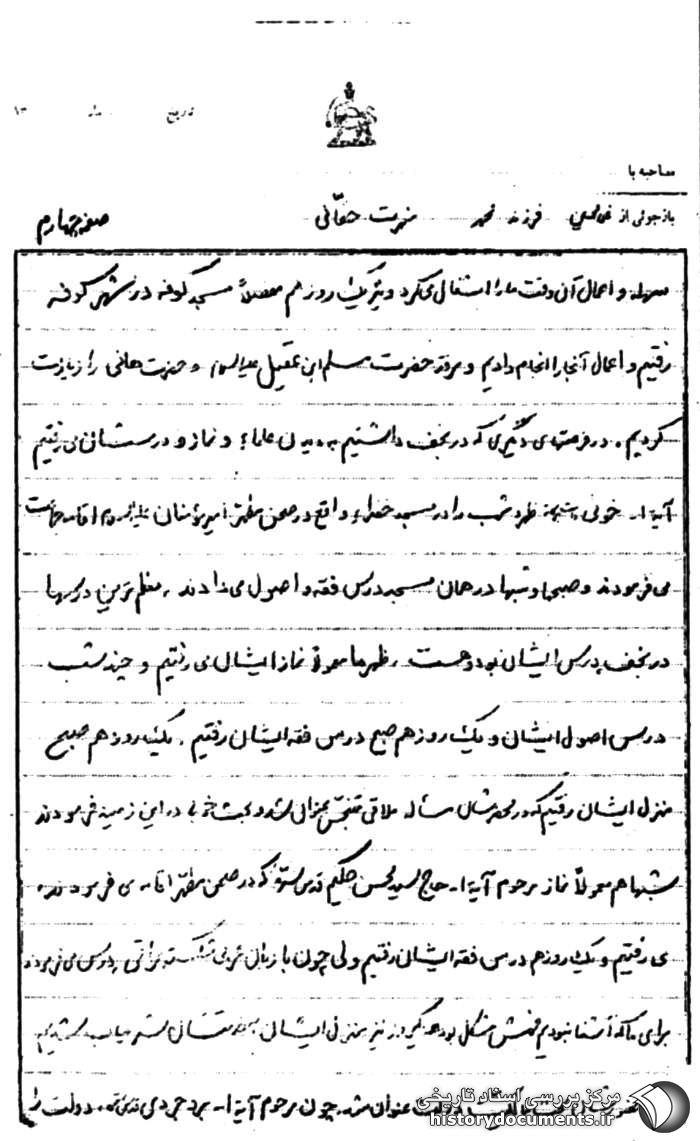 تاریخ
مصاحبه با
بازجوئی از فرزند محمد شهرت حقانی صفحه چهارم
سهله و اعمال آن وقت ما را اشغال می‌کرد و نیز یک روز هم مفصلاً مسجد کوفه در شهر کوفه
رفتیم و اعمال آنجا را انجام دادیم و مرقد حضرت مسلم ابن عقیل علیه‌السلام و حضرت هانی را زیارت
کردیم. در فرصتهای دیگری که در نجف داشتیم به دیدن علماء و نماز و درسشان می‌رفتیم
آیة ا... خوئی ظهر و شب را در مسجد خضراء واقع در صحن مطهر امیرمؤمنان علیه‌السلام اقامه جماعت
می‌فرمودند و صبحها و شبها در همان مسجد درس فقه و اصول می‌دادند. معظم‌ترین درسها
در نجف درس ایشان بود و هست. ظهرها معمولاً نماز ایشان می‌رفتیم و چند شب
درس اصول ایشان و یک روز هم صبح درس فقه ایشان رفتیم. یک روز هم صبح
منزل ایشان رفتیم که در محضرشان مسأله ملاقی متنجس عنوان شد و بحث خوبی در این زمینه فرمودند
شبها هم معمولاً نماز مرحوم آیة ا... حاج سید محسن حکیم قدس سره که در صحن مطهر اقامه می‌فرمودند
می‌رفتیم و یک روز هم درس فقه ایشان رفتیم ولی چون با زبان عربی شکسته عراقی درس می‌فرمودند
برای ما که آشنا نبودیم فهمش مشکل بود یک روز نیز منزل ایشان
عنوان شد. چون مرحوم آیة ا... بروجردی قدس سره دولت را
مرکز بررسی اسناد تاریخی
historydocuments.ir